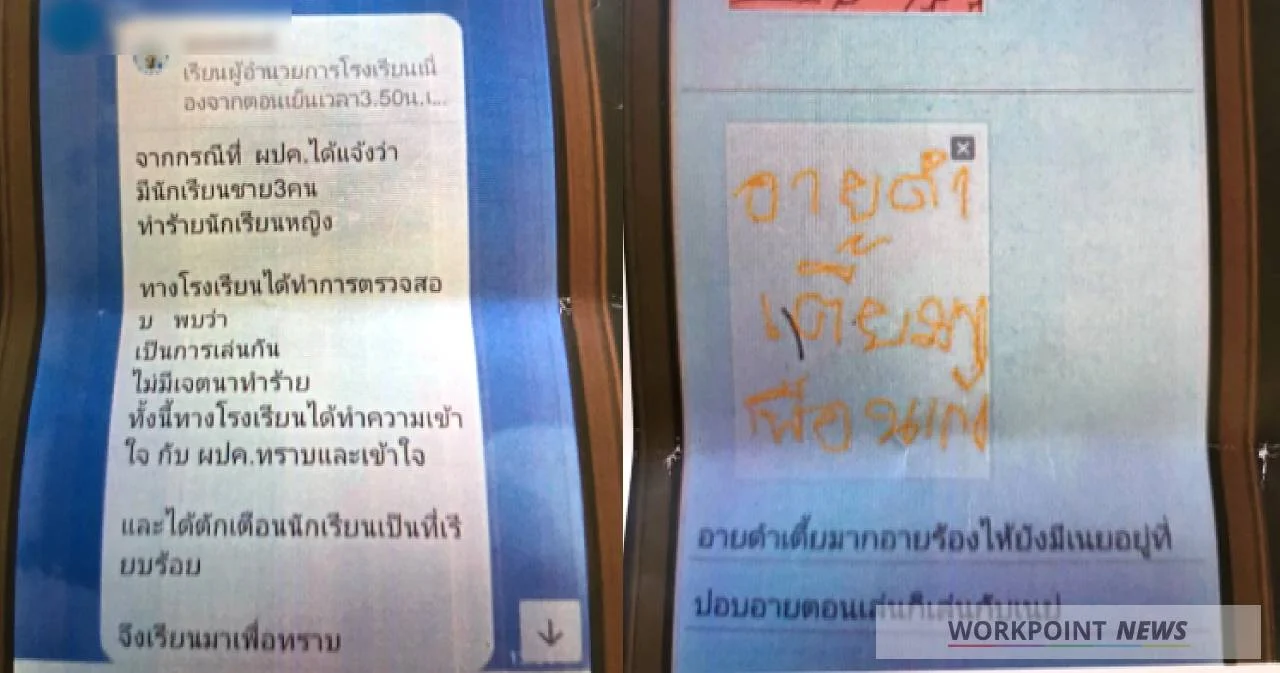 เรียนผู้อำนวยการโรงเรียนเนื่
องจากตอนเย็นเวลา3.50น.เ...
จากกรณีที่ ผปค.ได้แจ้งว่า
มีนักเรียนชาย3คน
ทำร้ายนักเรียนหญิง
ทางโรงเรียนได้ทำการตรวจสอ
บ พบว่า
เป็นการเล่นกัน
ไม่มีเจตนาทำร้าย
ทั้งนี้ทางโรงเรียนได้ทำความเข้า
ใจ กับ ผปค.ทราบและเข้าใจ
และได้ตักเตือนนักเรียนเป็นที่เรี
ยบร้อย
จึงเรียนมาเพื่อทราบ
อายดำ
เตี้ย
เพื่อน
อายดำเตี้ยมากอายร้องไห้ยังมีเนยอยู่ที่
ปอบอายตอนเล่นก็เล่นกับเนย
WORKPOINT NEWS